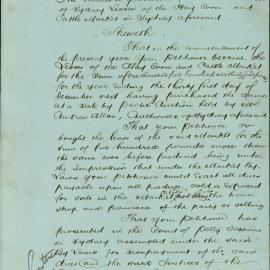 of Sydney Lessee of the Hay Corn and
Cattle Market in Sydney aforesaid
Sheweth
That in the commencement of
the present year Your Petitioner became the
Lessee of the Hay Corn and Cattle Market
for the Sum of one thousand five hundred and
for the year ending the thirty first day of
December next having purchased the same
at a Sale by Public Auction held by
Andrew Allan, Auctioneer of Sydney aforesaid
That your Petitioner so
bought the lease of the said Market for the
sum of five hundred pounds more than
the same ever before produced being under
the impression that under the Market By
Laws your Petitioner could exact all dues
payable upon all produce sold or exposed
for sale in the Market the
shop and premises of the party so selling
That your Petitioner has
presented in the Court of Petty Sessions
in Sydney assembled under the said
By Laws for nonpayment of the said
dues and the Justices of the